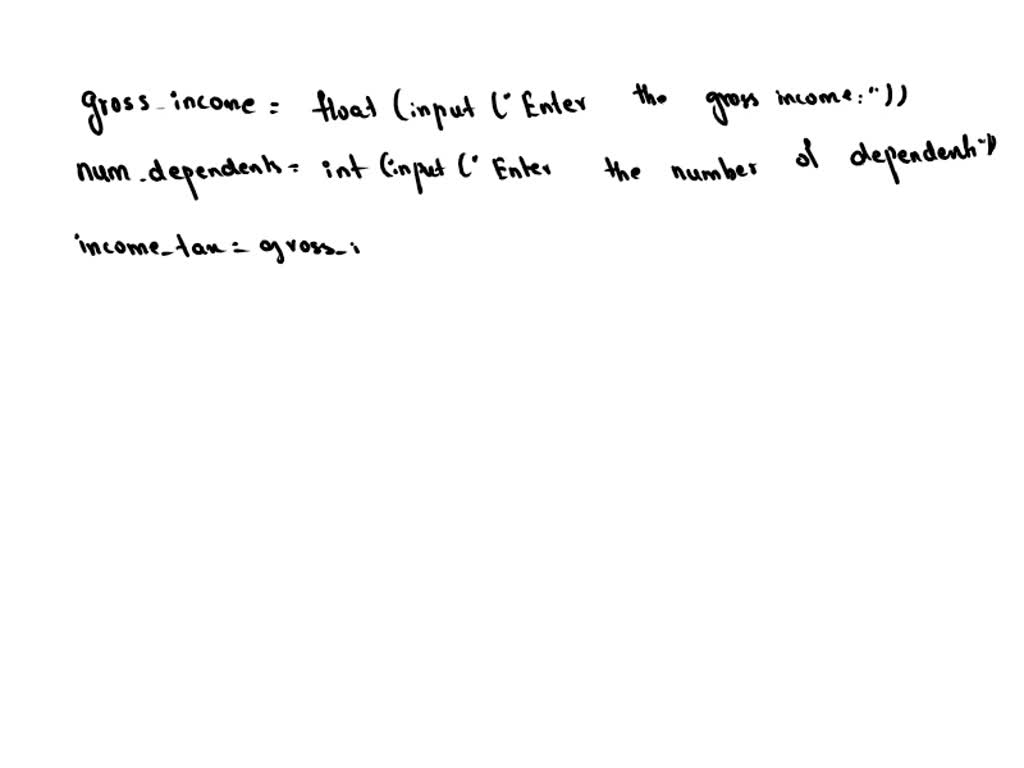 gross_income = float (input ("Enter the gross income:"))
num_dependents = int (input (" Enter the number of dependents:"))
income_tax = gross_i